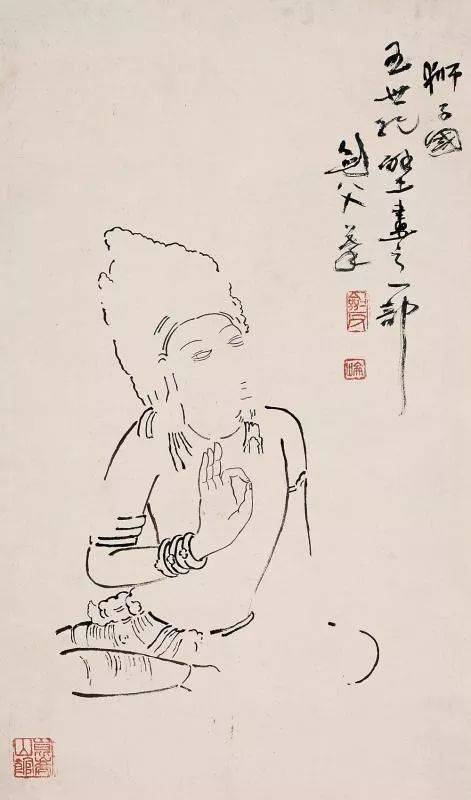 獅子國
五世紀壁畫之一部
劍父摹